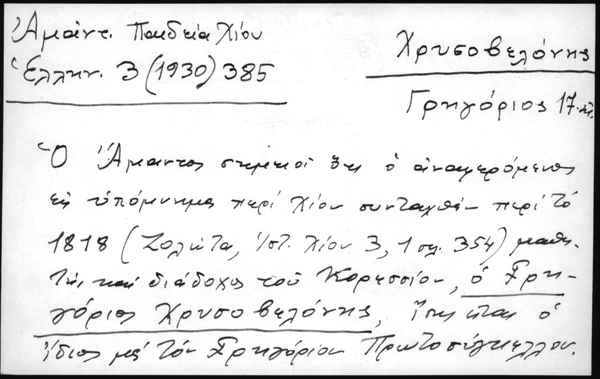 Ἀμάντ. Παιδεία Χίου
Ἑλλην. 3 (1930) 385
Χρυσοβελόνης
Γρηγόριος 17. αἰ.
Ὁ Ἄμαντος σημειοῖ ὅτι ὁ ἀναφερόμενος
εἰς ὑπόμνημα περὶ Χίου συνταχθὲν περὶ τὸ
1818 (Ζολώτα, Ἱστ. Χίου 3, 1 σελ. 354) μαθη-
τὴς καὶ διάδοχος τοῦ Κορεσσίου, ὁ Γρη-
γόριος Χρυσοβελόνης, ἴσως εἶναι ὁ
ἴδιος μὲ τὸν Γρηγόριον Πρωτοσύγκελλον.